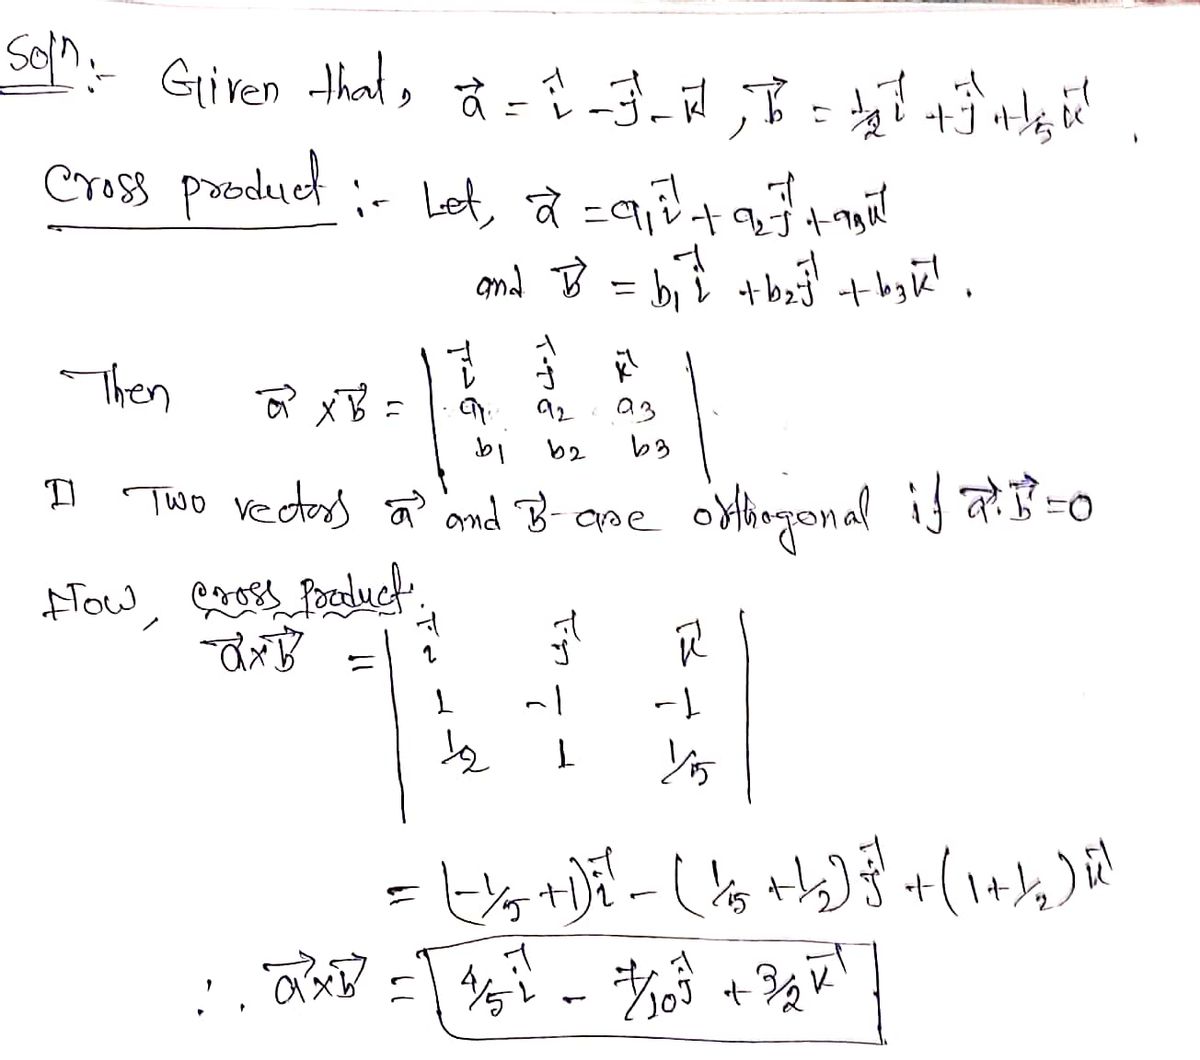 Soln:- Given that, a⃗ = i⃗ - j⃗ - k⃗, b⃗ = 1/2 i⃗ + j⃗ + 1/5 k⃗.
Cross product :- Let, a⃗ = a₁i⃗ + a₂j⃗ + a₃k⃗
and b⃗ = b₁i⃗ + b₂j⃗ + b₃k⃗.
Then a⃗ × b⃗ = | i⃗ j⃗ k⃗ |
| a₁ a₂ a₃ |
| b₁ b₂ b₃ |
Two vectors a⃗ and b⃗ are orthogonal if a⃗.b⃗=0
Now, cross product.
a⃗×b⃗ = | i⃗ j⃗ k⃗ |
| 1 -1 -1 |
| 1/2 1 1/5 |
= (-1/5 + 1)i⃗ - (1/5 + 1/2)j⃗ + (1 + 1/2)k⃗
∴ a⃗×b⃗ = 4/5 i⃗ - 7/10 j⃗ + 3/2 k⃗